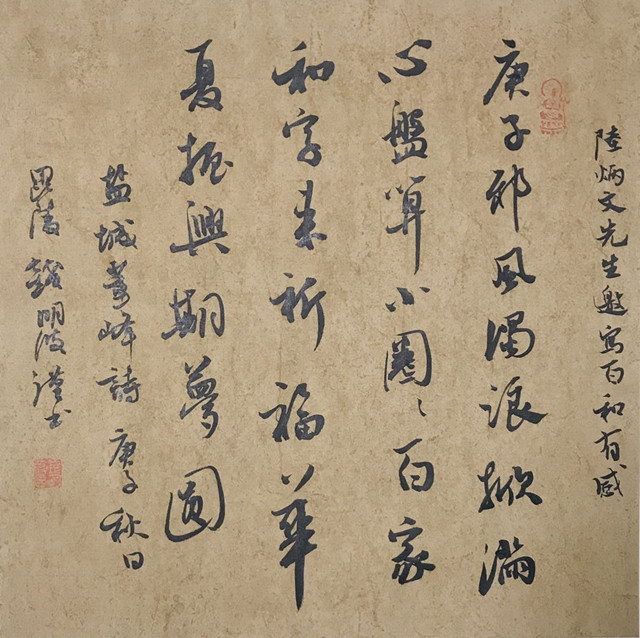 陸炳文先生邀寫百和有感
庚子邪風濁浪掀滿
心盤算小圈々百家
和字来祈福華
夏振興期夢圓
盐城峰詩庚子秋日
毘陵錢明波謹书